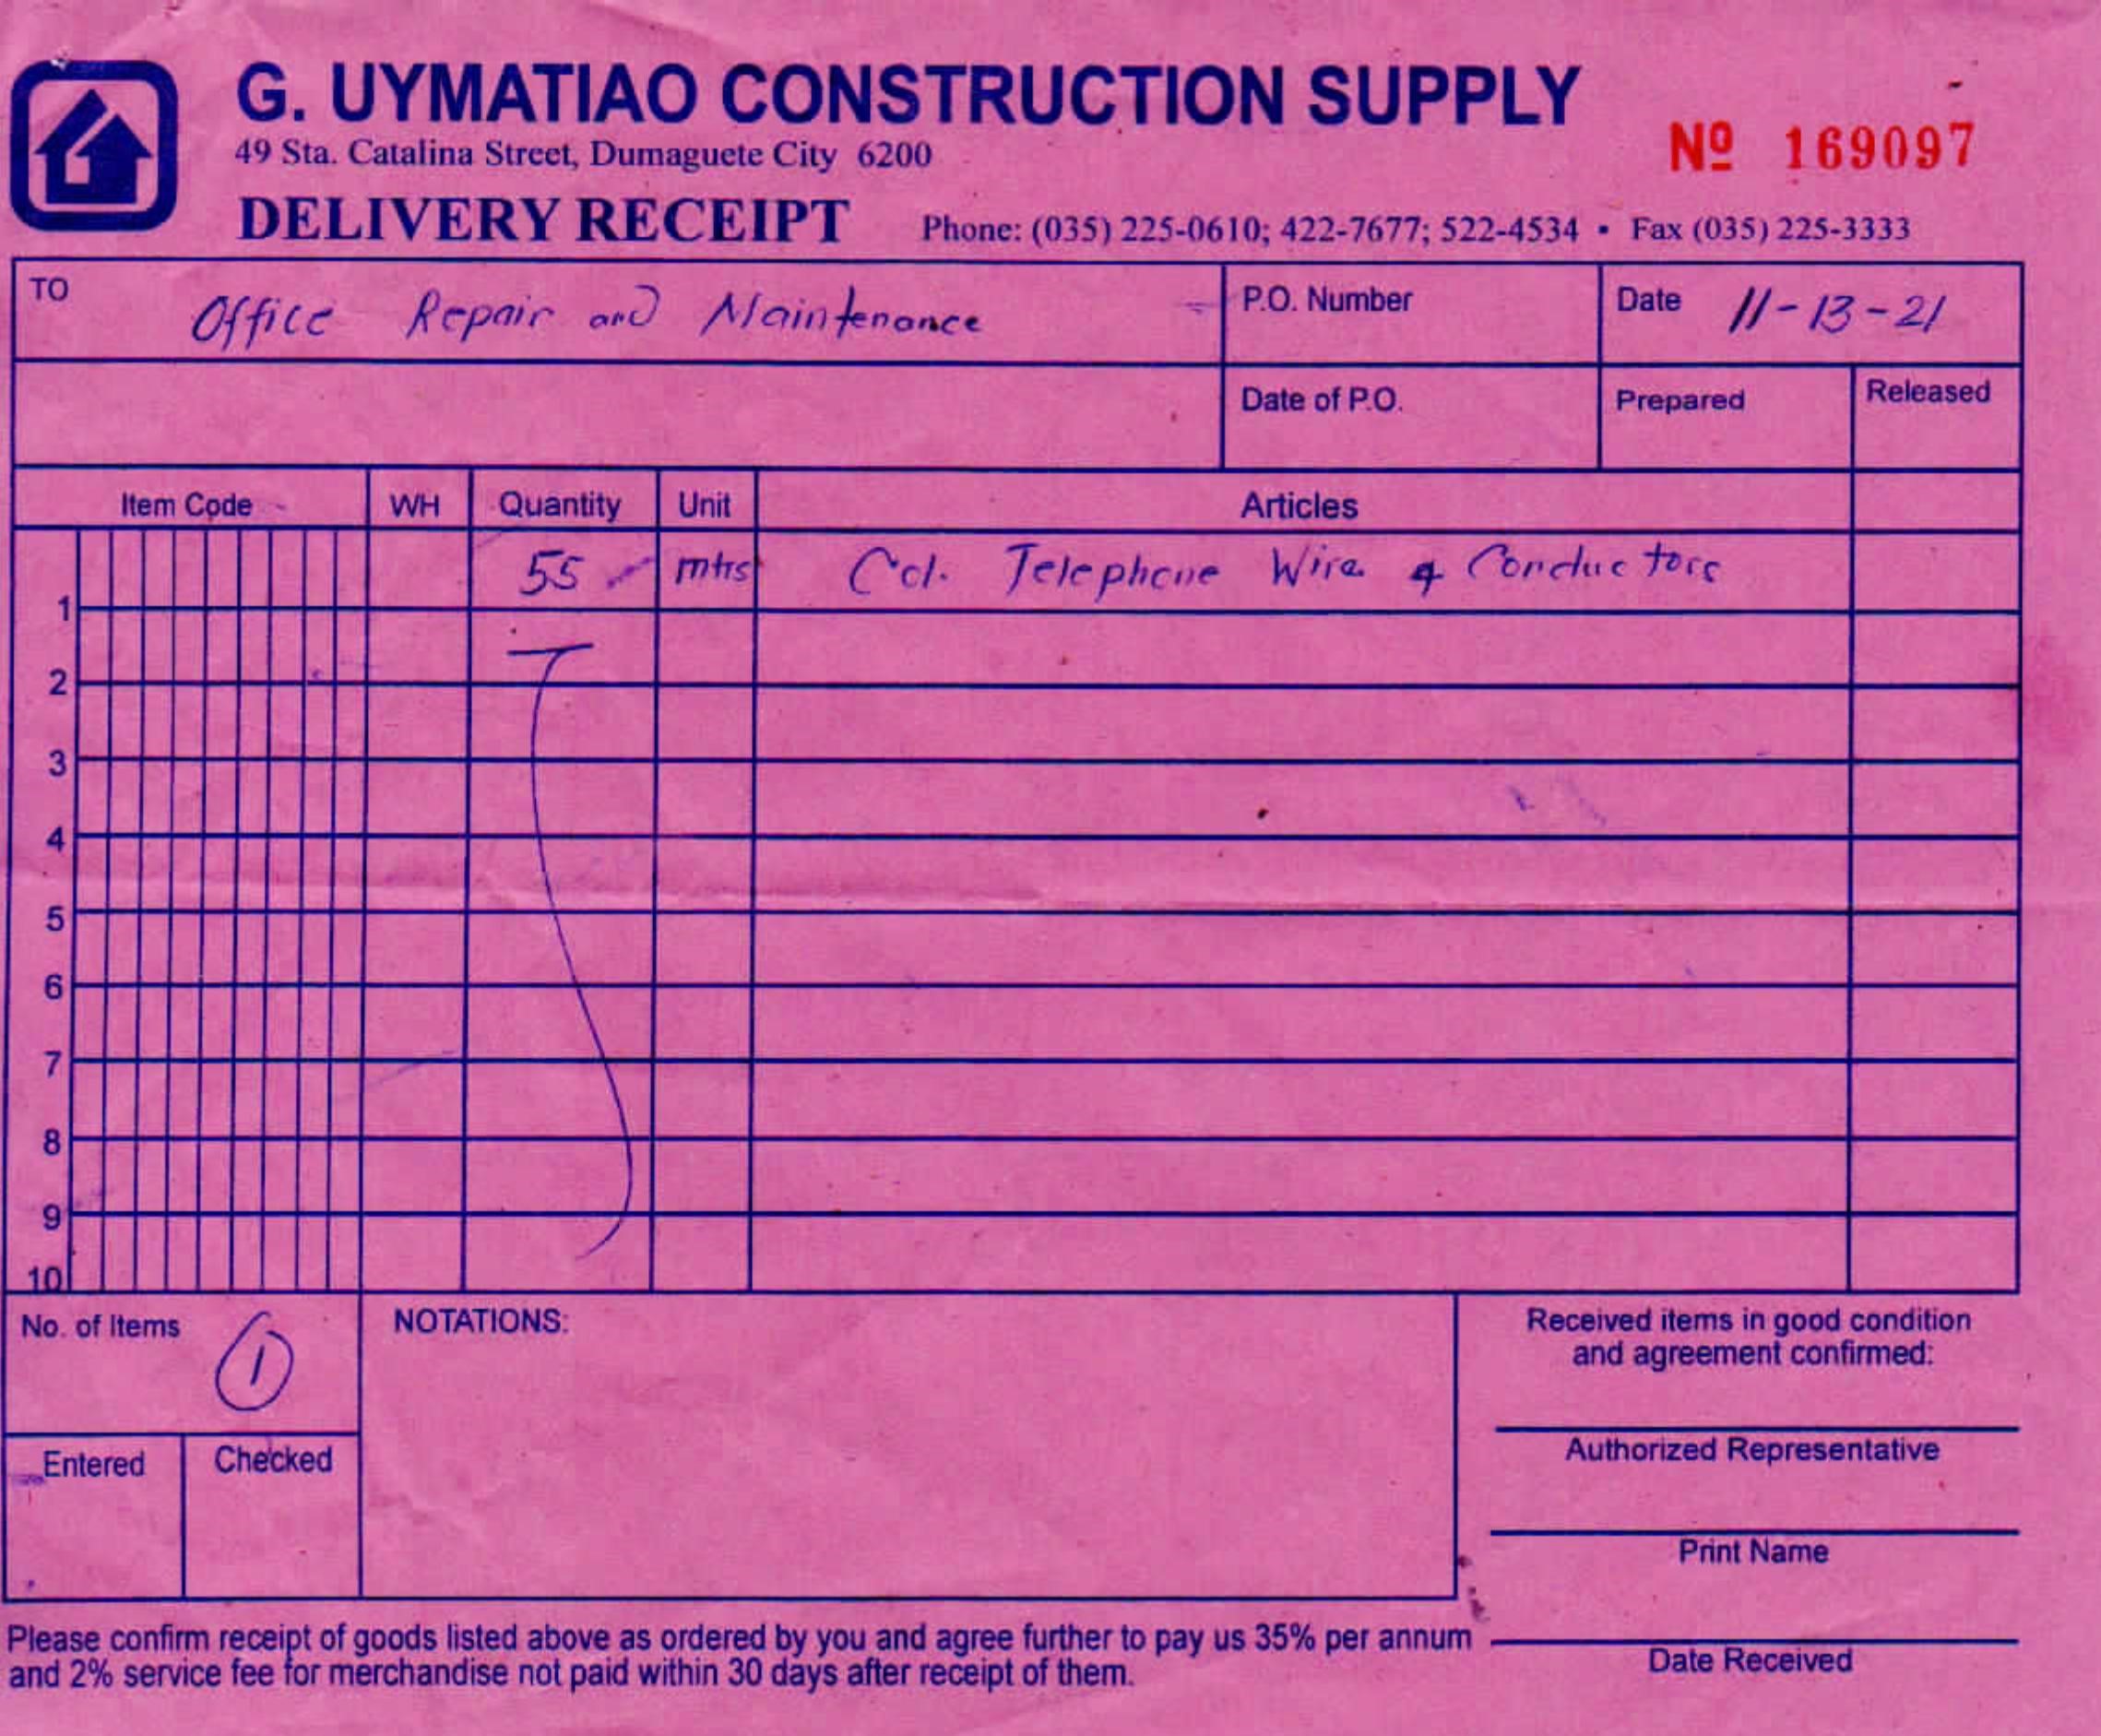 G. UYMATIAO CONSTRUCTION SUPPLY
49 Sta. Catalina Street, Dumaguete City 6200
Nº 169097
DELIVERY RECEIPT Phone: (035) 225-0610; 422-7677; 522-4534 • Fax (035) 225-3333
TO Office Repair and Maintenance
P.O. Number
Date 11-13-21
Date of P.O.
Prepared
Released
Item Code WH Quantity Unit Articles
1 55 mtrs Col. Telephone Wire 4 Conductors
2
3
4
5
6
7
8
9
10
No. of Items 1
NOTATIONS:
Received items in good condition
and agreement confirmed:
Entered Checked
Authorized Representative
Print Name
Please confirm receipt of goods listed above as ordered by you and agree further to pay us 35% per annum
and 2% service fee for merchandise not paid within 30 days after receipt of them.
Date Received